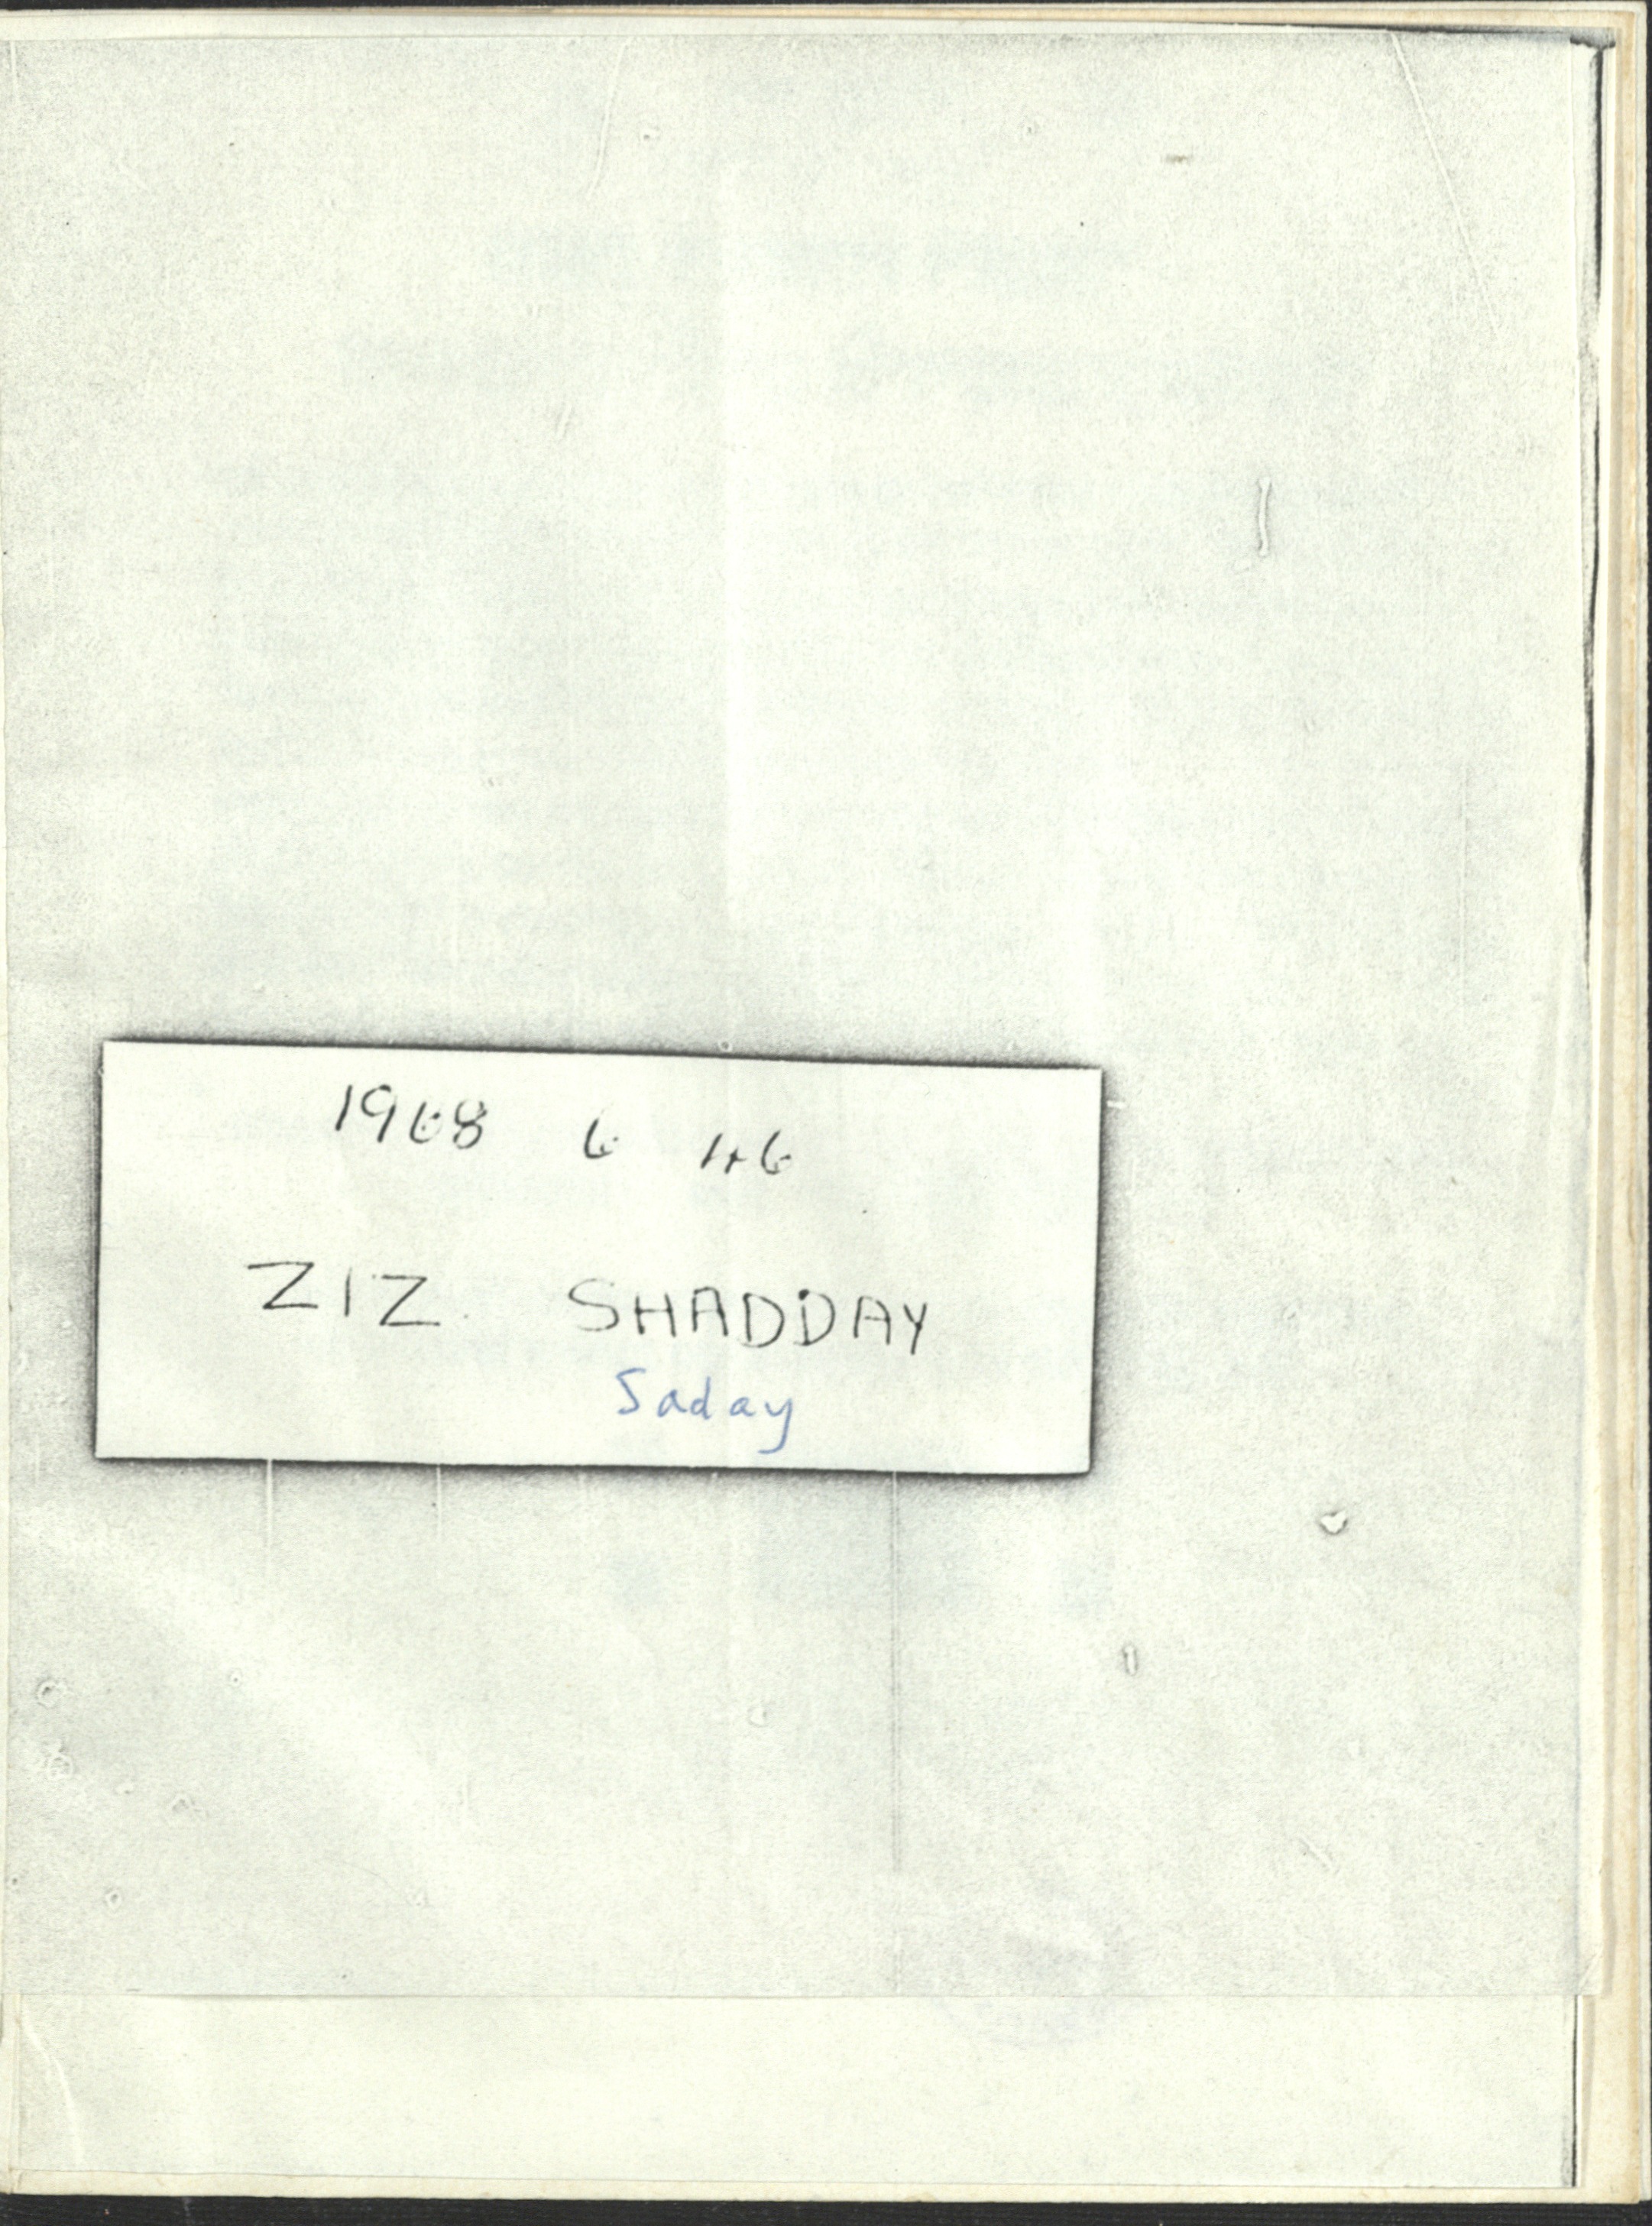 1968 6 46
ZIZ SHADDAY
Saday